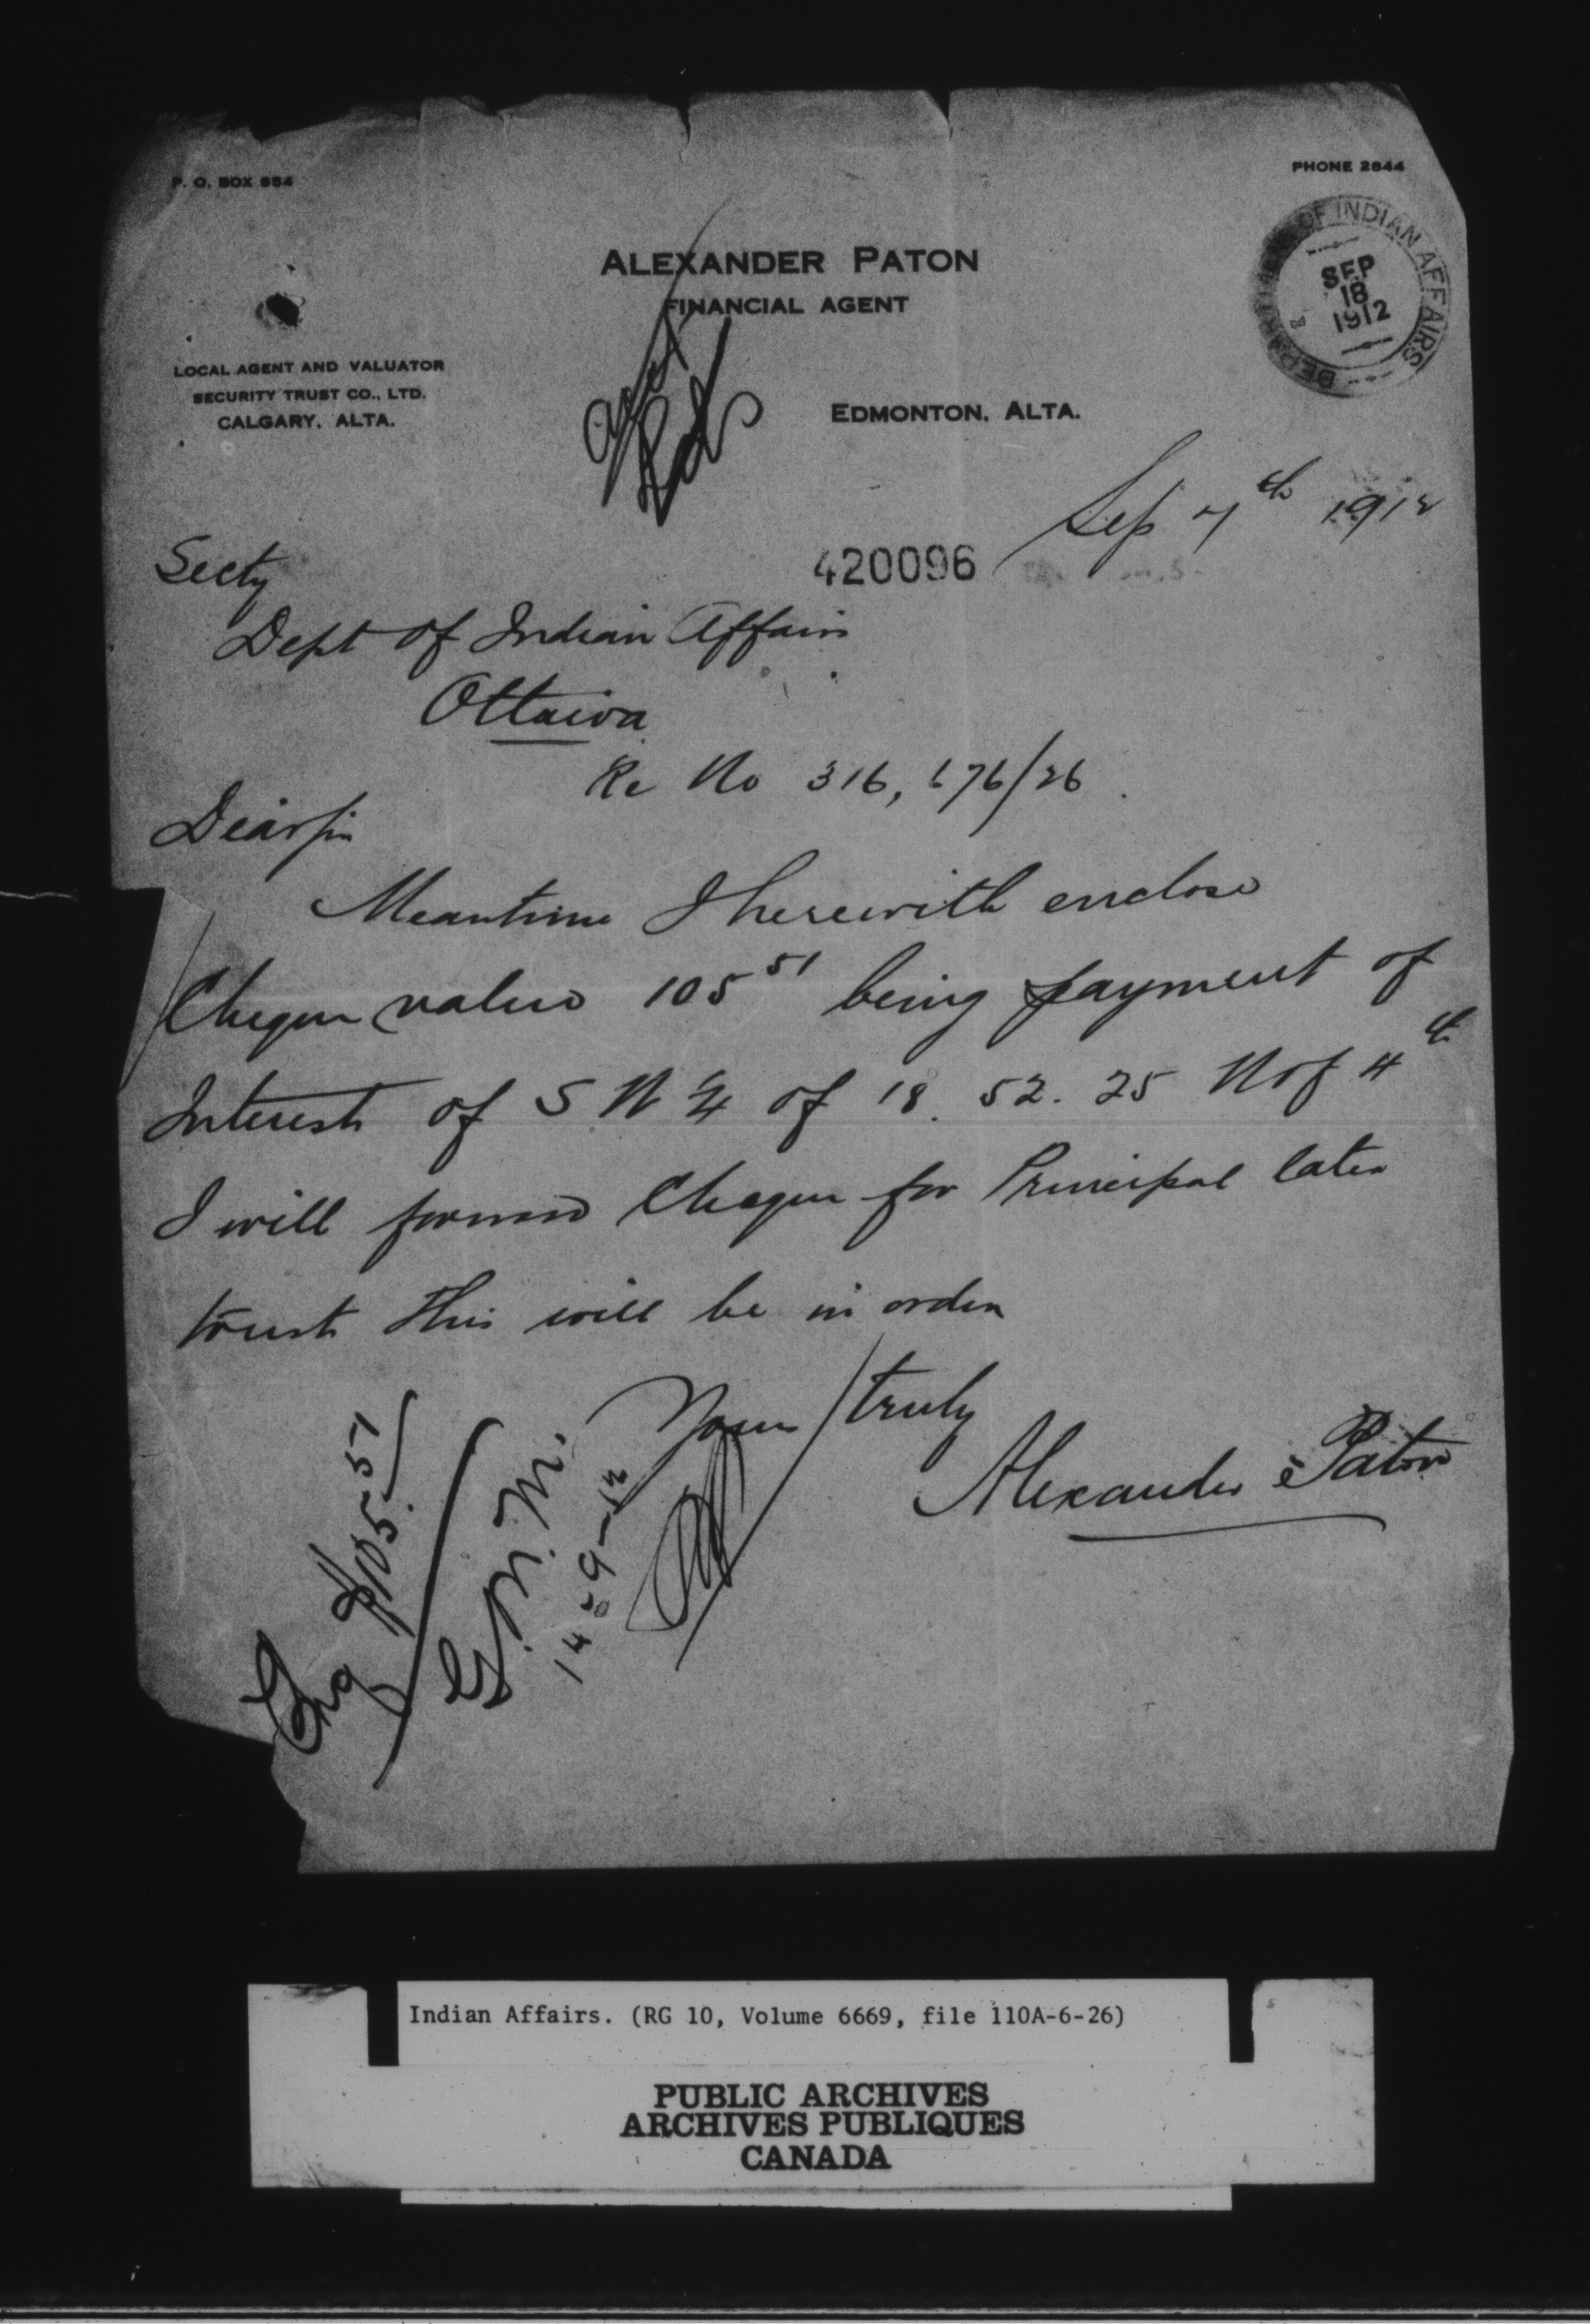 P. O. BOX 654
PHONE 2844
DEPARTMENT OF INDIAN AFFAIRS
SEP
18
1912
ALEXANDER PATON
FINANCIAL AGENT
LOCAL AGENT AND VALUATOR
SECURITY TRUST CO., LTD.
CALGARY, ALTA.
EDMONTON, ALTA.
Sep 7th 1912
420096
Secty
Dept of Indian Affairs
Ottawa
Re No 316,676/26
Dear Sir
Meantime I herewith enclose
Cheque value 105 51 being payment of
Interest of S W ¼ of 18. 52. 25 W of 4th
I will forward Cheque for Principal later
trust this will be in order
Yours truly
Alexander Paton
Chq $105.51
G.M.M.
14-9-12
Indian Affairs. (RG 10, Volume 6669, file 110A-6-26)
PUBLIC ARCHIVES
ARCHIVES PUBLIQUES
CANADA